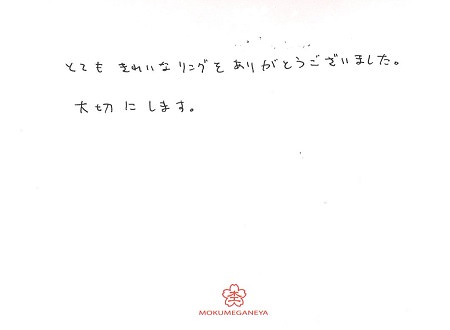 とても きれいなリングをありがとうございました。
大切にします。
MOKUMEGANEYA